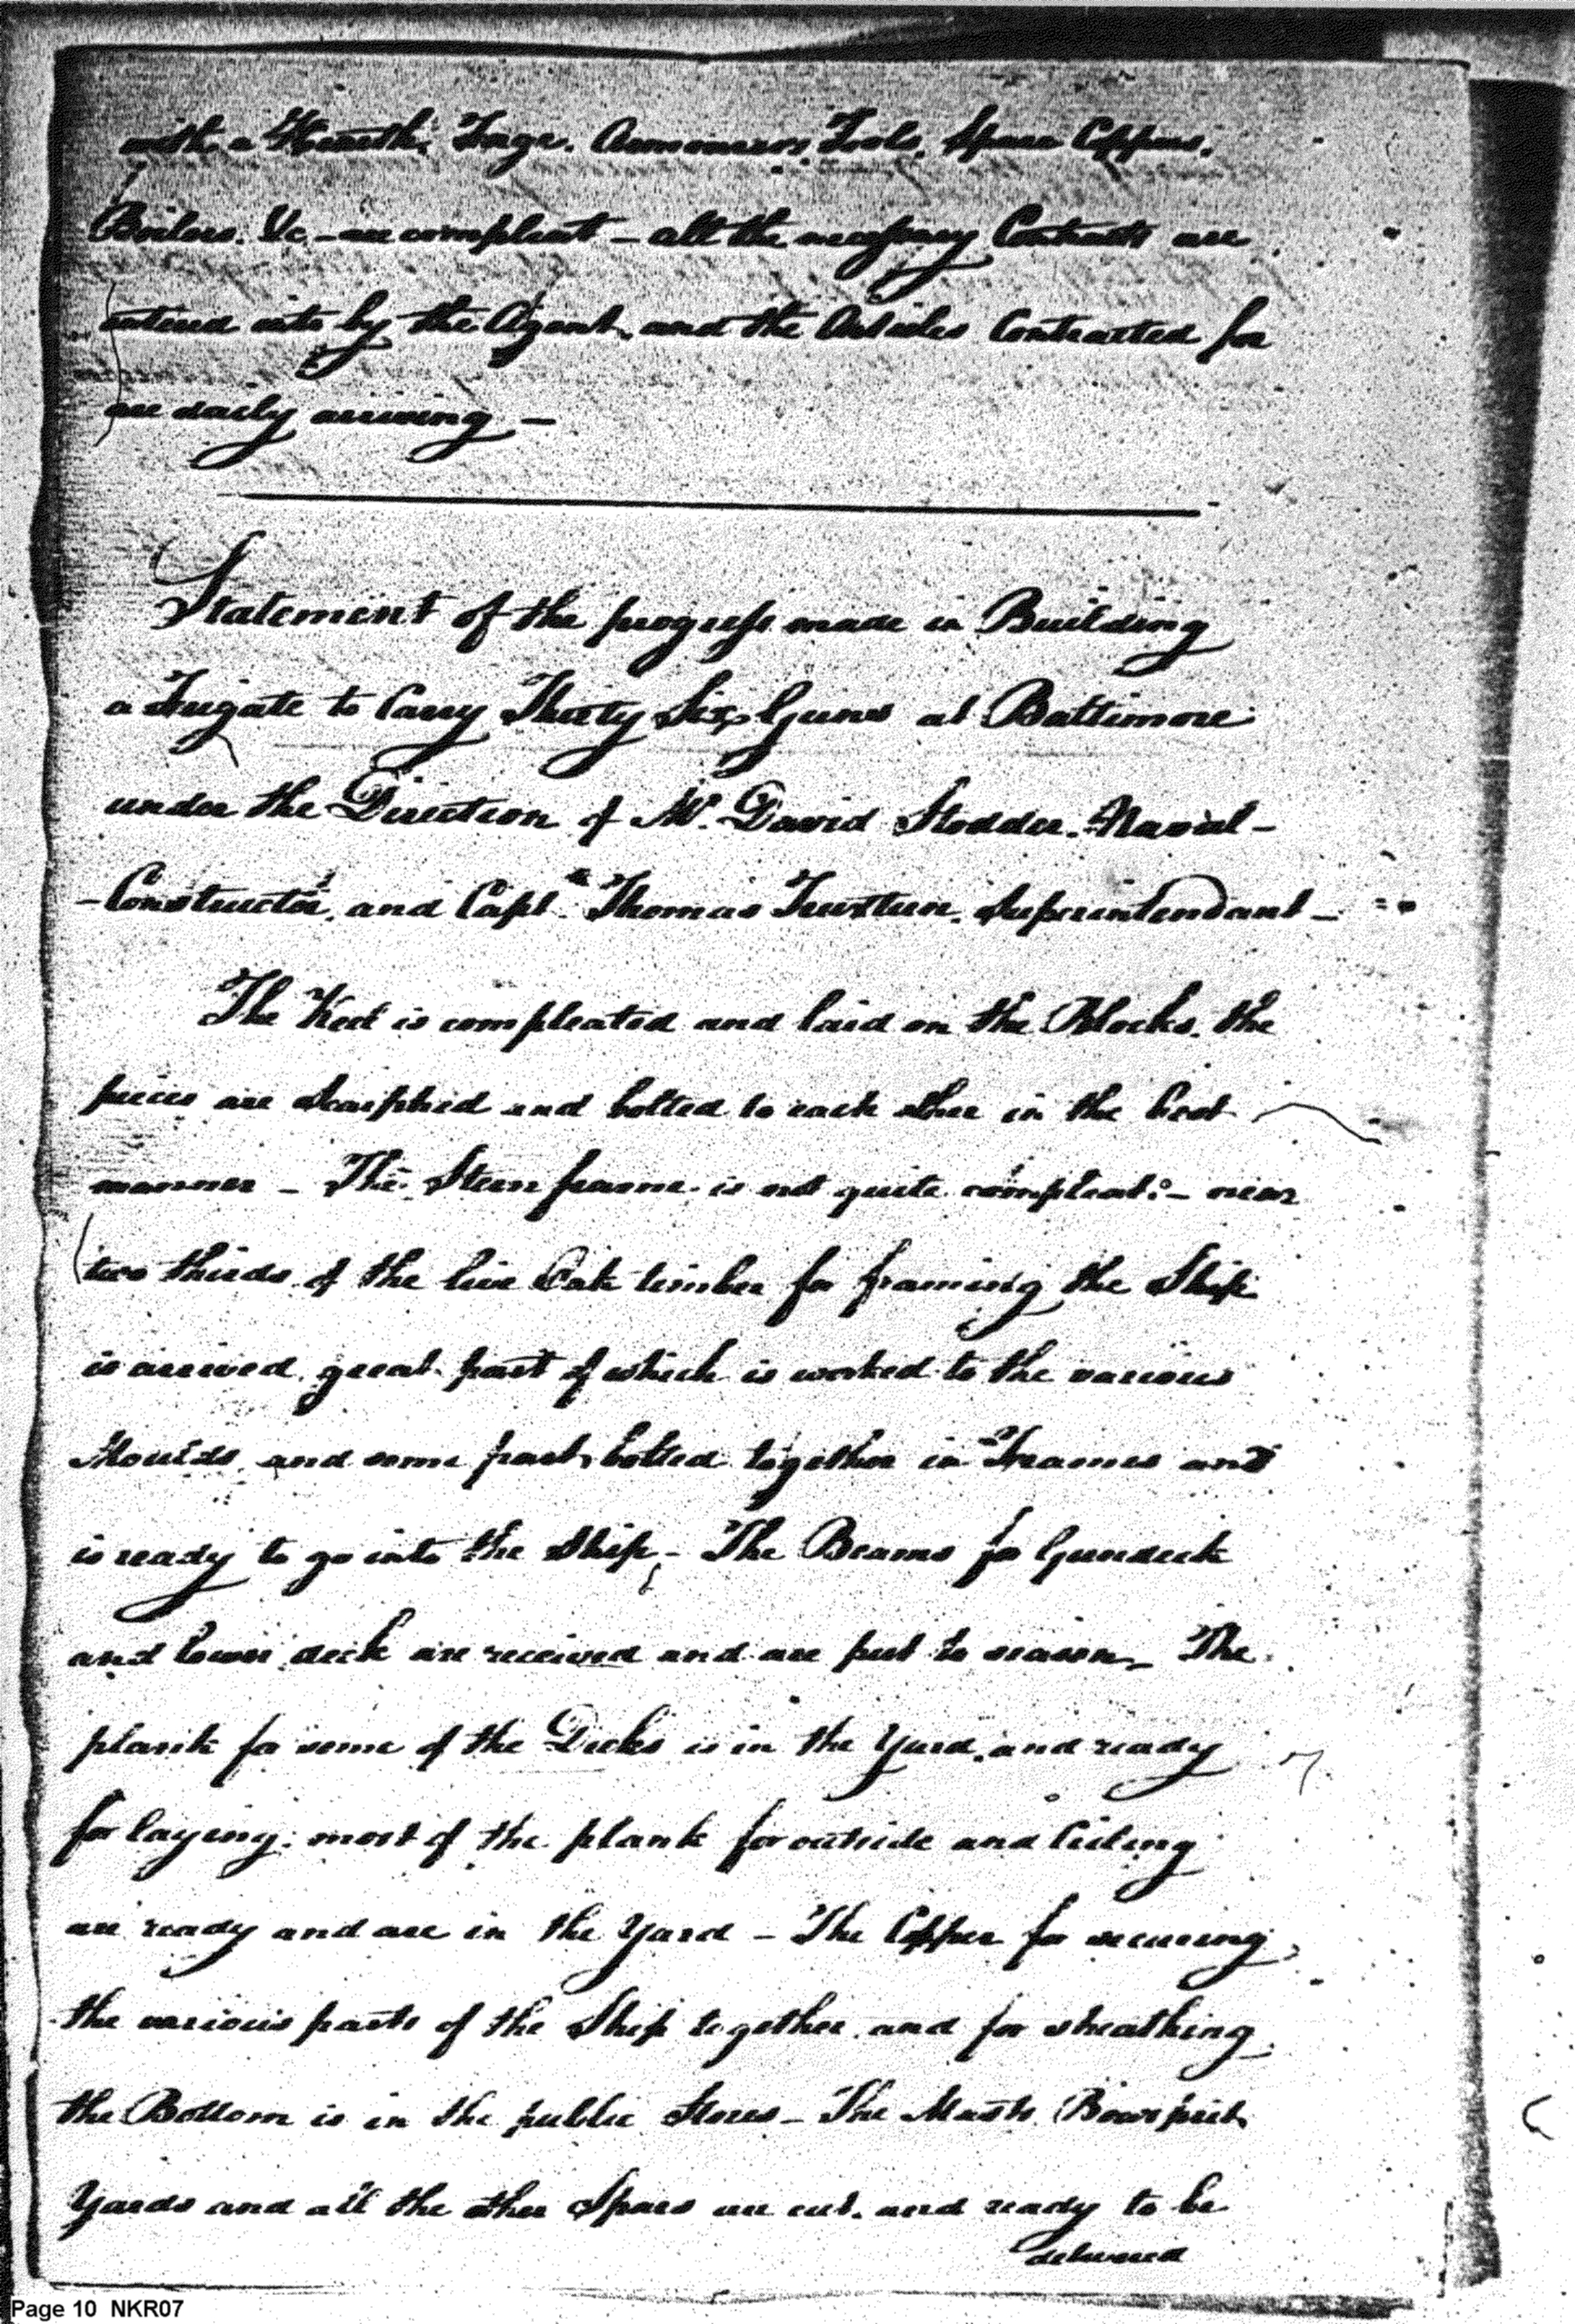 with a Hearth. Forge. Armourers Tools, Spare Coppers.
Boilers. &c — are compleat — all the necessary Contracts are
entered into by the Agent, and the Articles Contracted for
are daily arriving —
Statement of the progress made in Building
a Frigate to Carry Thirty Six Guns at Baltimore
under the Direction of Mr. David Stodder. Naval-
-Constructor, and Capt. Thomas Truxtun. Superintendant —
The Keel is compleated and laid on the Blocks. the
pieces are Scarphed and bolted to each other in the best
manner — The Stern frame is not quite compleat: — near
two thirds of the live Oak timber for framing the Ship
is arrived, great part of which is worked to the various
Moulds, and some part bolted together in Frames and
is ready to go into the Ship, — The Beams for Gundeck
and lower deck are received and are put to season — The
plank for some of the Decks is in the Yard, and ready
for laying; most of the plank for outside and Ceiling
are ready and are in the Yard — The Copper for securing
the various parts of the Ship together, and for sheathing
the Bottom is in the public Stores — The Masts, Bowsprit,
Yards and all the other Spars are cut. and ready to be
delivered
Page 10 NKR07